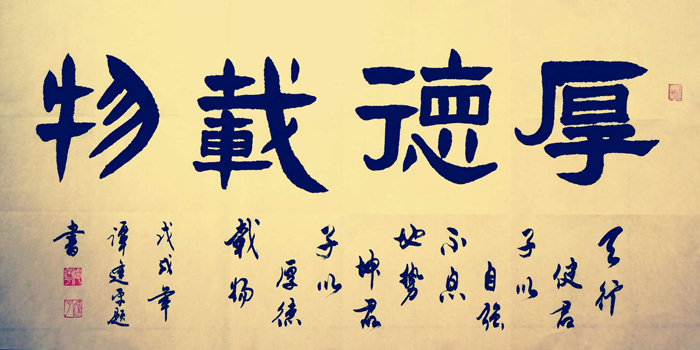 厚德載物
天行
健君
子以
自強
不息
地勢
坤君
子以
厚德
載物
戊戌
譚建題
書